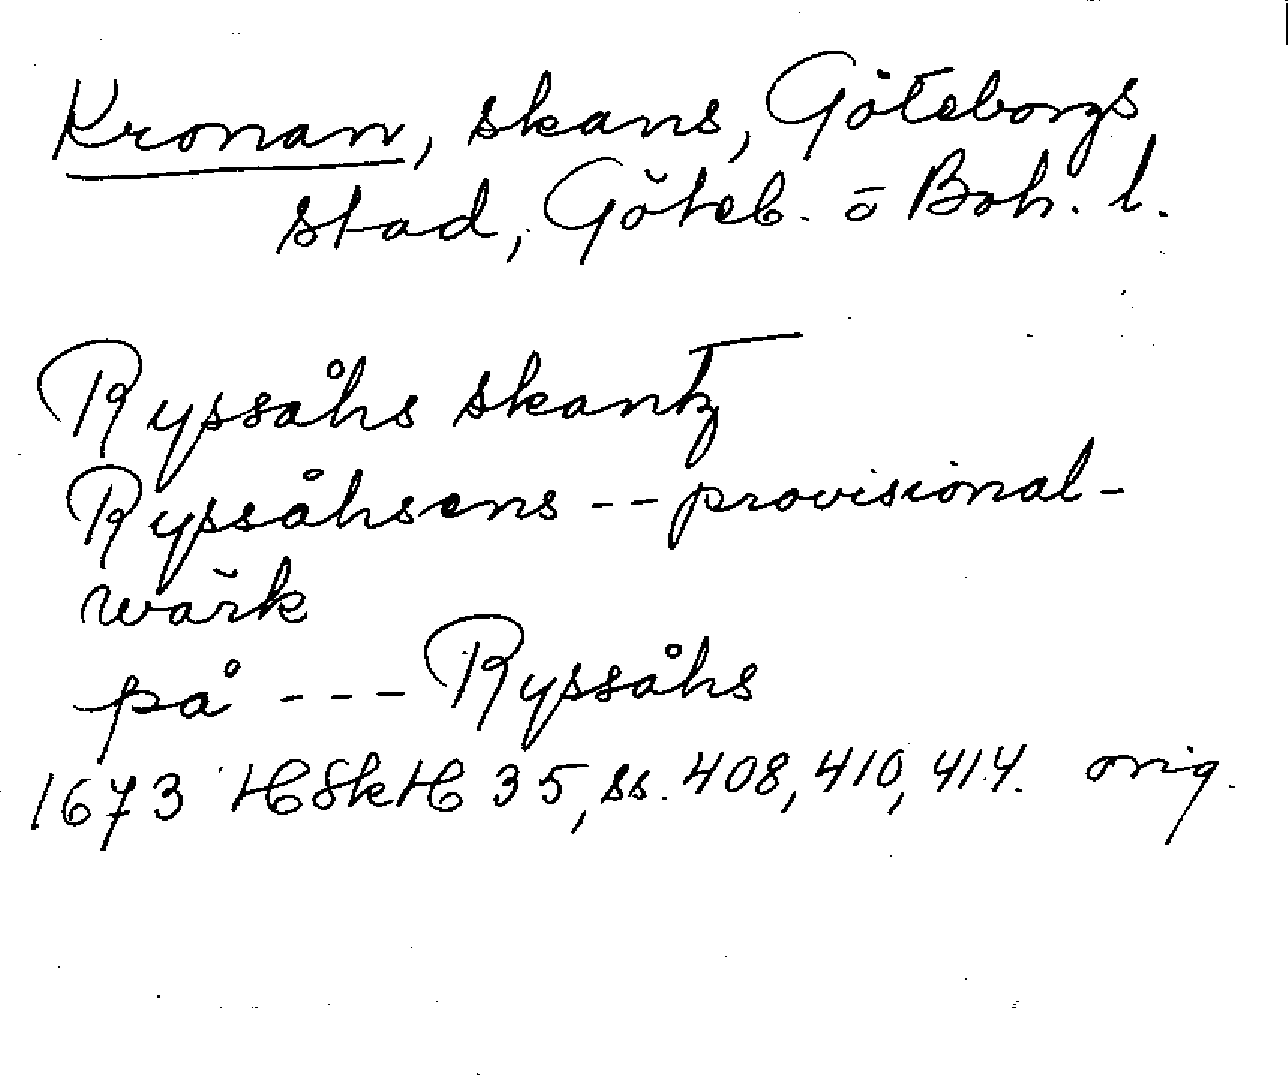 Kronan, skans, Göteborgs
stad, Göteb. o Boh. l.
Ryssåhs skantz
Ryssåhsens -- provisional-
wärk
på --- Ryssåhs
1673 HSkH 35, ss. 408, 410, 414. orig.